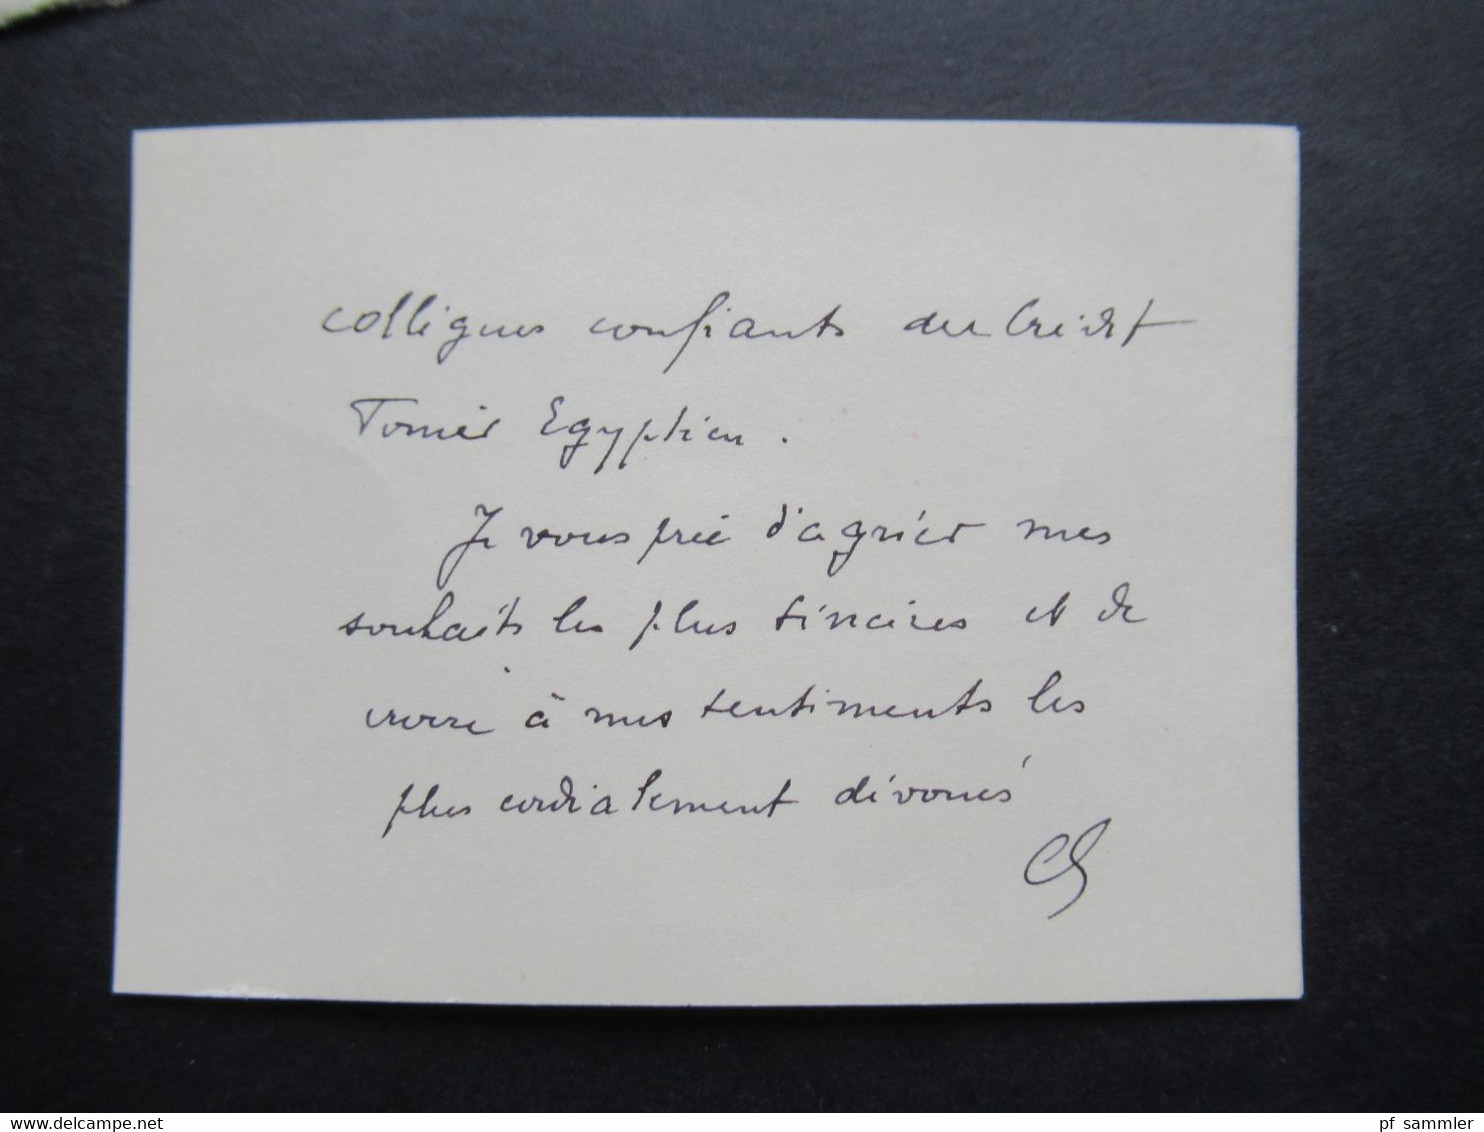 collègues confiants du Crédit
Foncier Egyptien.
Je vous prie d'agréer mes
souhaits les plus sincères et de
croire à mes sentiments les
plus cordialement dévoués
www.delcampe.net
pf_sammler